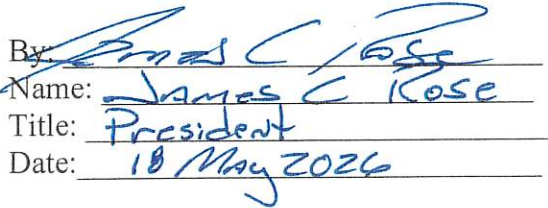 By: James C Rose
Name: James C Rose
Title: President
Date: 18 May 2026